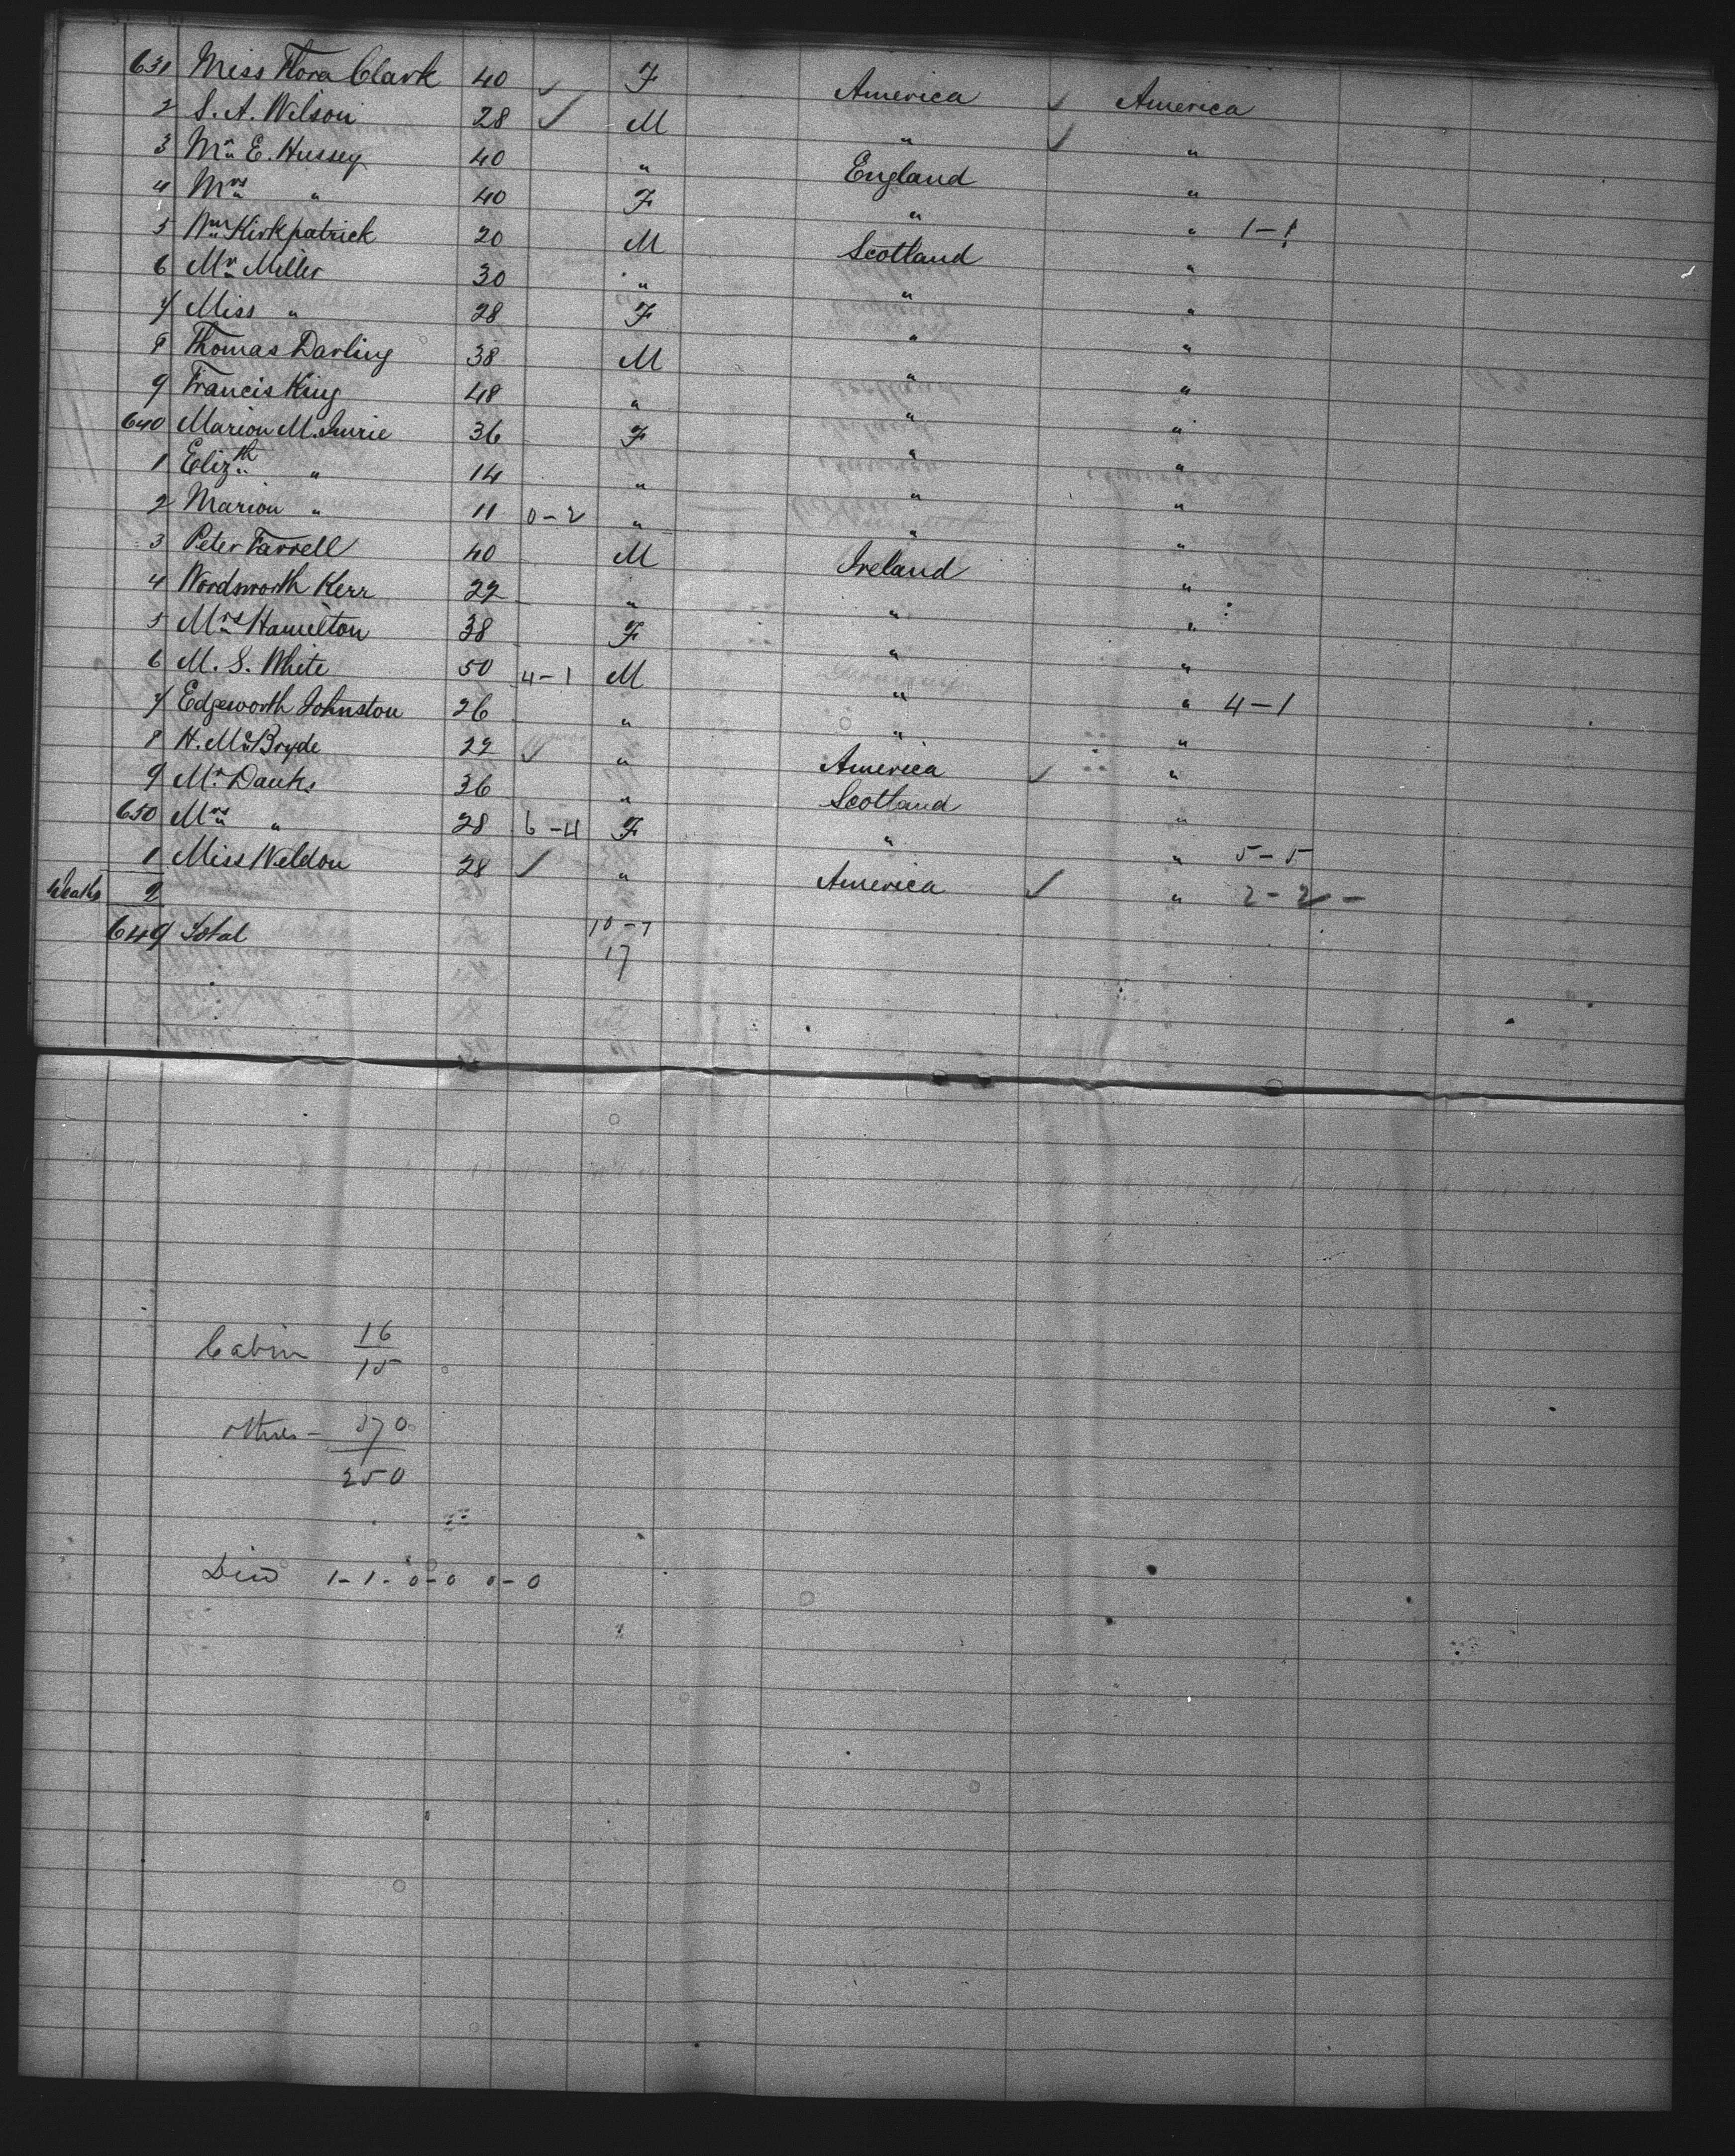 631 Miss Flora Clark 40 ✓ F America ✓ America
2 S. A. Wilson 28 ✓ M " ✓ "
3 Mr E. Hussey 40 " England "
4 Mrs " 40 F " " 1-1
5 Wm Kirkpatrick 20 M Scotland "
6 Mr Miller 30 " " "
7 Miss " 28 F " "
8 Thomas Darling 38 M " "
9 Francis King 48 " " "
640 Marion M. 36 F " "
1 Elizth " 14 " " "
2 Marion " 11 0-2 " " "
3 Peter Farrell 40 M Ireland "
4 Wordsworth Kerr 22 " " "
5 Mrs Hamilton 38 F " "
6 M. S. White 50 4-1 M " " 4-1
7 Edgeworth Johnston 26 " " "
8 H. McBryde 22 ✓ " America ✓ "
9 Mr Danks 36 " Scotland "
650 Mrs " 28 6-4 F " " 5-5
1 Miss Weldon 28 ✓ " America ✓ " 2-2-
Deaths 2
649 Total 10-7
17
Cabin 16
15
others - 370
250
Died 1-1-0-0 0-0